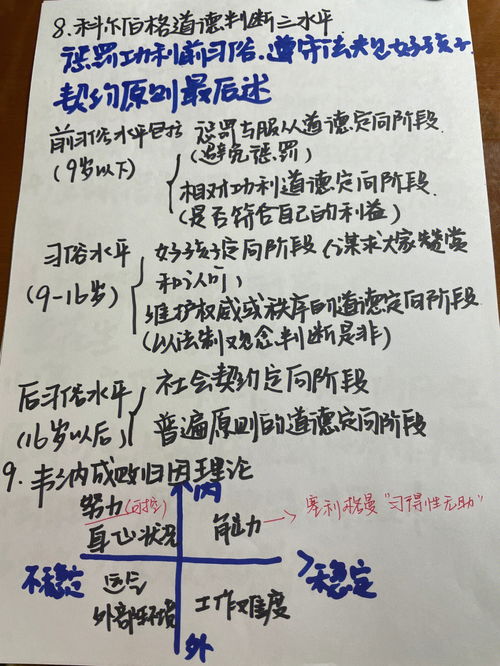 8.科尔伯格道德判断三水平
惩罚功利前习俗.遵守法规好孩子
契约原则最后述
前习俗水平包括
(9岁以下)
惩罚与服从道德定向阶段.
(避免惩罚)
相对功利道德定向阶段.
(是否符合自己的利益)
习俗水平
(9-16岁)
好孩子定向阶段(谋求大家赞赏
和认可)
维护权威或秩序的道德定向阶段
(以法制观念判断是非)
后习俗水平
(16岁以后)
社会契约定向阶段
普遍原则的道德定向阶段
9.韦纳成败归因理论
内
努力(可控)
身心状况
能力→塞利格曼"习得性无助"
不稳定
稳定
运气
外部环境
工作难度
外